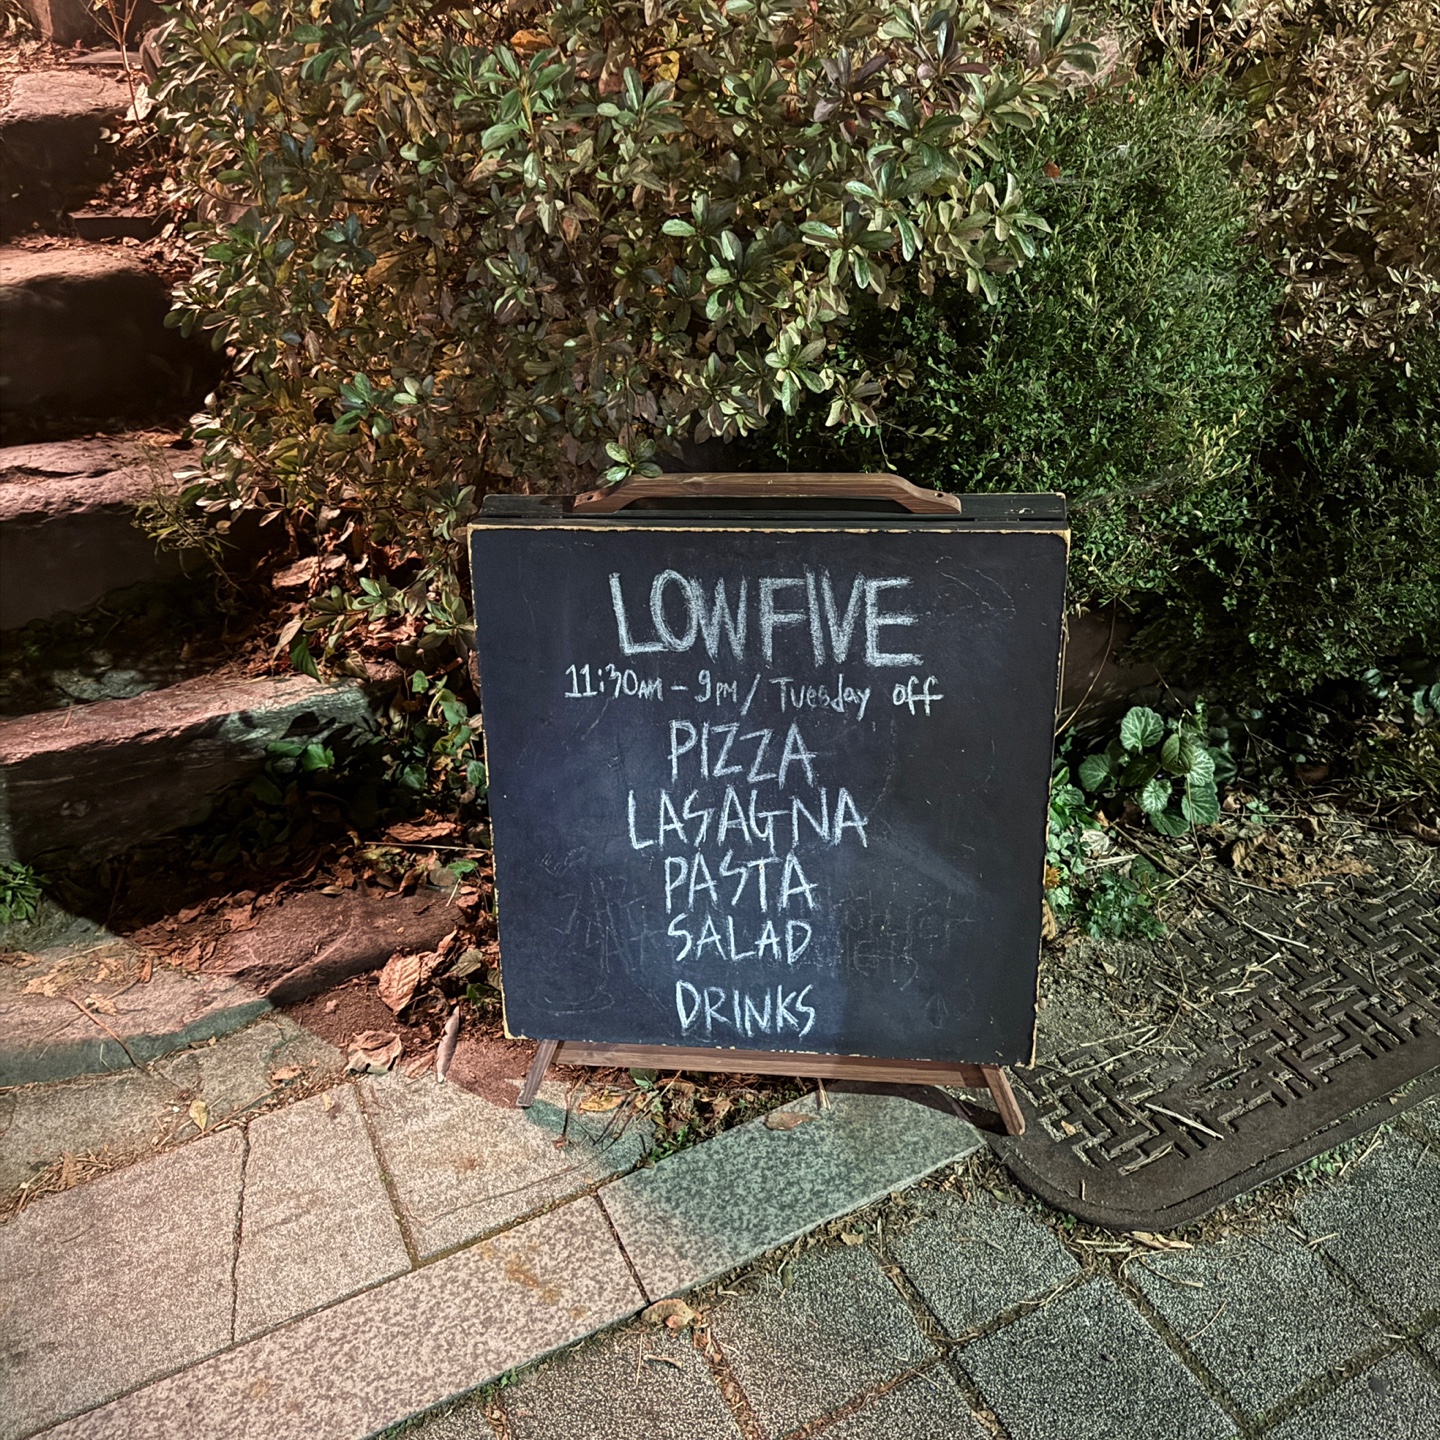 LOWFIVE
11:30AM - 9PM / Tuesday off
PIZZA
LASAGNA
PASTA
SALAD
DRINKS